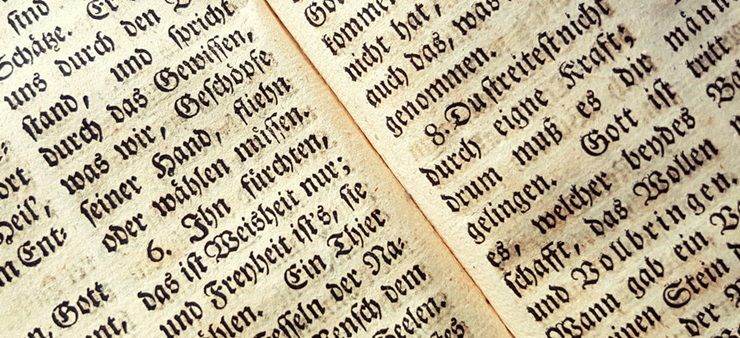 Gott
ſind
Schätze. Er
uns durch den
ſtand, und ſpricht
durch das Gewiſſen,
was wir, Geſchöpfe
ſeiner Hand, fliehn
oder wählen müſſen.
6. Ihn fürchten,
das iſt Weisheit nur;
und Freyheit iſt's, ſie
Ein Thier
der Na-
Menſch dem
Seelen.
kommen
nicht hat,
auch das, was
genommen.
8. Du ſtreiteſt nicht
durch eigne Kraft;
drum muß es dir
gelingen. Gott iſt
es, welcher beydes
ſchafft, das Wollen
und Vollbringen.
Wann gab ein
einen Stein
tritt